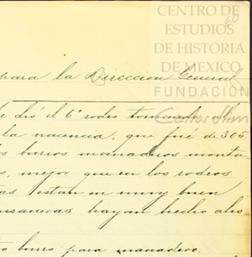 CENTRO DE
ESTUDIOS
DE HISTORIA
DE MEXICO
FUNDACIÓN
60
para la Direccion General
dió el 6º rodeo tomando
la nacencia, que fué de 305
burros manaderos monta
mejor que en los rodeos
estan en muy buen
hayan hecho
burro para manadero.